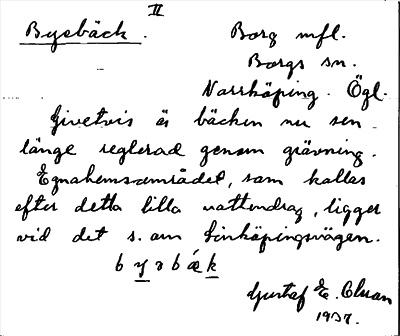 II
Bysbäck. Borg mfl.
Borgs sn.
Norrköping. Ögl.
Givetvis är bäcken nu sen
länge reglerad genom grävning.
Egnahemsområdet, som kallas
efter detta lilla vattendrag, ligger
vid det s. om Linköpingsvägen.
Gustaf E. Olsson
1937.